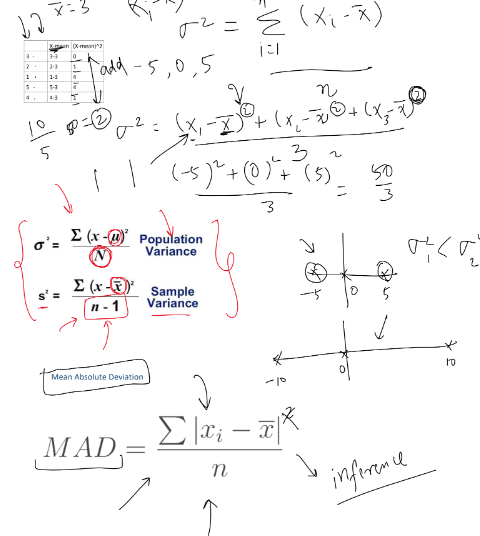 x̄=3
σ² = Σ (xᵢ - x̄)
i=1
n
X-mean (X-mean)^2
3 3-3 0
2 2-3 1
1 1-3 4
5 5-3 4
4 4-3 1
add -5, 0, 5
10/5 = 2
σ² = (x₁-x̄)² + (x₂-x̄)² + (x₃-x̄)²
3
(-5)² + (0)² + (5)² = 50
3 3
σ² = Σ (x - u)² Population
N Variance
s² = Σ (x - x̄)² Sample
n - 1 Variance
-5 0 5
σ₁² < σ₂²
-10 0 10
Mean Absolute Deviation
MAD = Σ |xᵢ - x̄|
n
inference